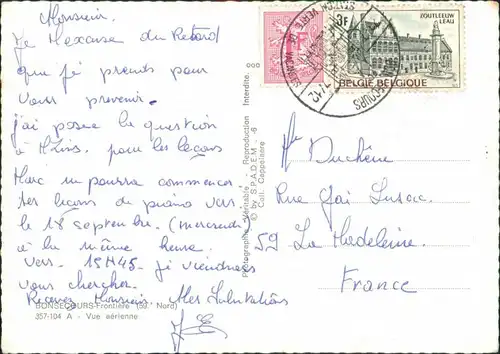 Monsieur.
Je M'excuse du Retard
que j'ai prends pour
Vous prevenir.
j'ai posée la question
à pour les leçons
Marc un pourra commencer
ses leçons de piano vers
le 18 septembre. (mercredi)
à la même heure
vers. 15H45. Je viendrais
vous chercher.
Recevez Monsieur. Mes Salutations
BONSECOURS-Frontière (59. Nord)
357-104 A - Vue aérienne
Photographie Véritable - Reproduction Interdite.
© by S.P.A.D.E.M. -6
Coll. Cappelaere
ZOUTLEEUW
LEAU
3F
BELGIE BELGIQUE
Duchêne
Rue Gai Lussac.
59 La Madeleine.
France